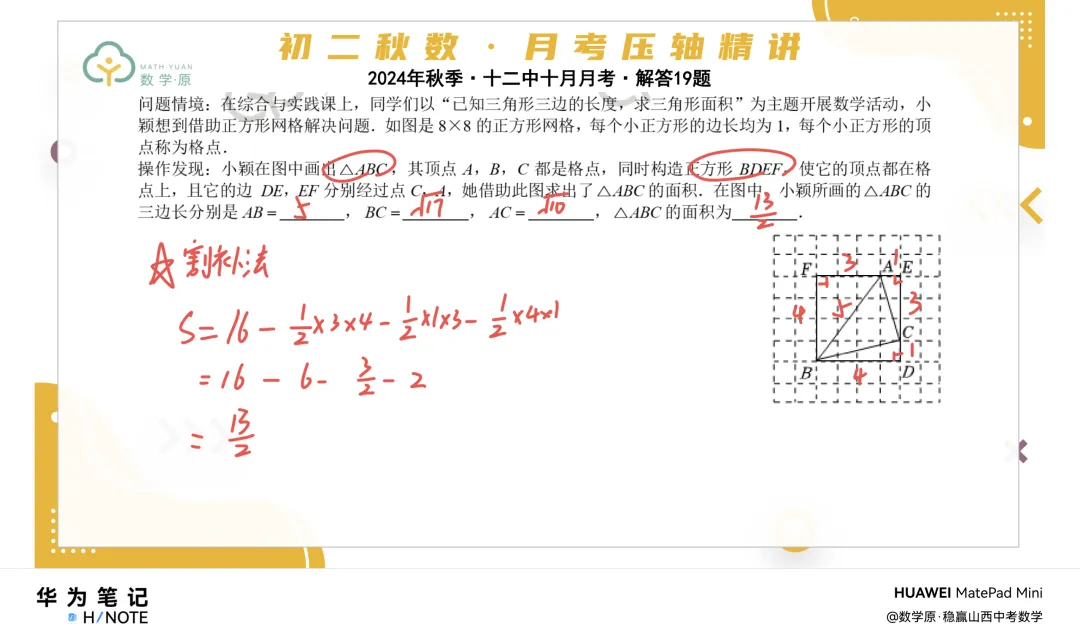 初二秋数·月考压轴精讲
MATH·YUAN
数学·原
2024年秋季·十二中十月月考·解答19题
问题情境：在综合与实践课上，同学们以“已知三角形三边的长度，求三角形面积”为主题开展数学活动，小
颖想到借助正方形网格解决问题．如图是 8×8 的正方形网格，每个小正方形的边长均为 1，每个小正方形的顶
点称为格点．
操作发现：小颖在图中画出△ABC，其顶点 A，B，C 都是格点，同时构造正方形 BDEF，使它的顶点都在格
点上，且它的边 DE，EF 分别经过点 C，A，她借助此图求出了△ABC 的面积．在图中，小颖所画的△ABC 的
三边长分别是 AB = 5，BC = √17，AC = √10，△ABC 的面积为 13/2．
☆割补法
S = 16 - 1/2×3×4 - 1/2×1×3 - 1/2×4×1
= 16 - 6 - 3/2 - 2
= 13/2
F 3 A 1 E
4 5 3
C
1
B 4 D
华为笔记
HUAWEI MatePad Mini
H/NOTE
@数学原·稳赢山西中考数学